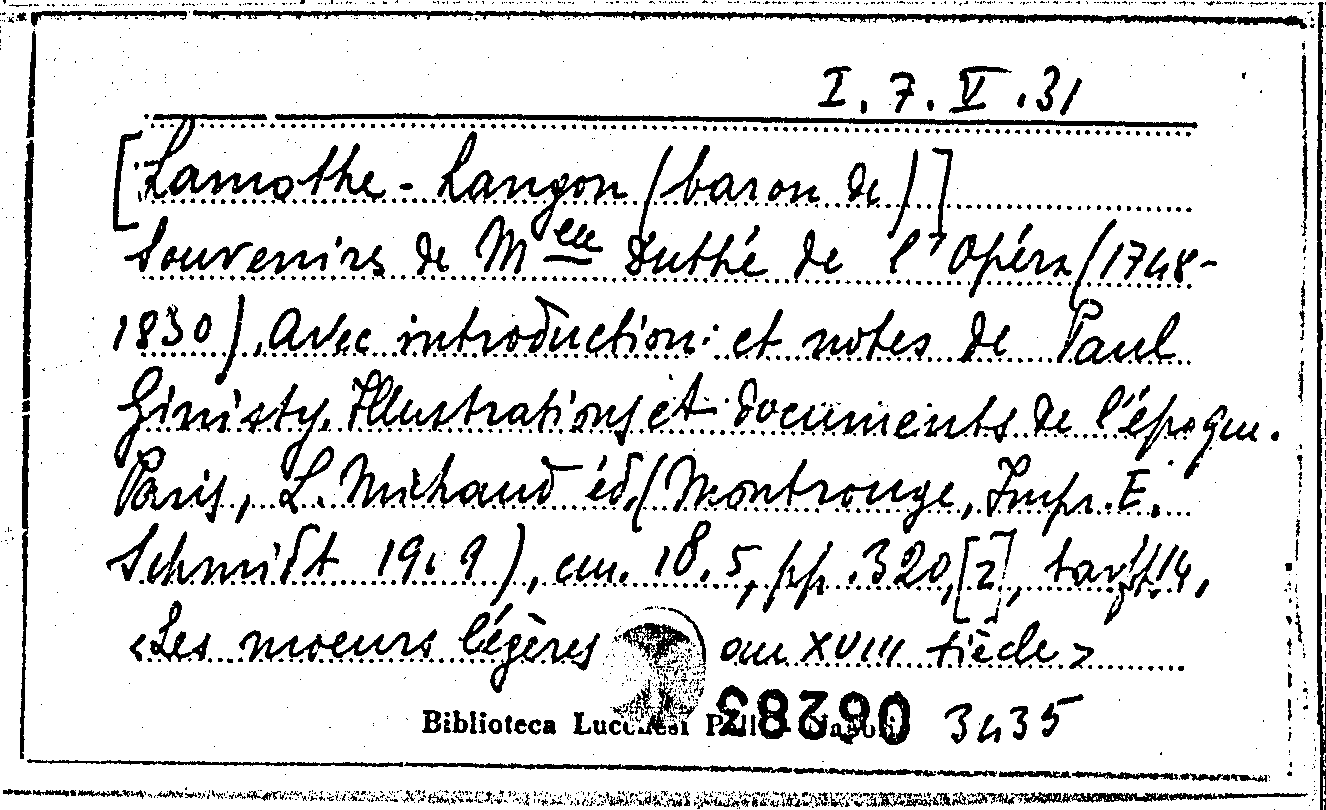 I. 7. V. 31
[Lamothe-Langon (baron de)]
Souvenirs de Mlle Duthé de l'Opéra (1748-
1830). Avec introduction et notes de Paul
Ginisty. Illustrations et documents de l'époque.
Paris, L. Michaud éd. (Montrouge, Impr. E.
Schmidt 1909), cm. 18.5, pp. 320, [2], tav. 14.
<Les moeurs légères au XVIII siècle>
Biblioteca Lucchesi Palli - Napoli
3435